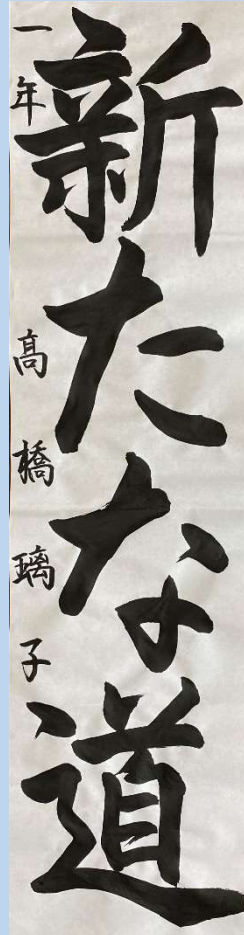 新たな道
一年 高橋璃子